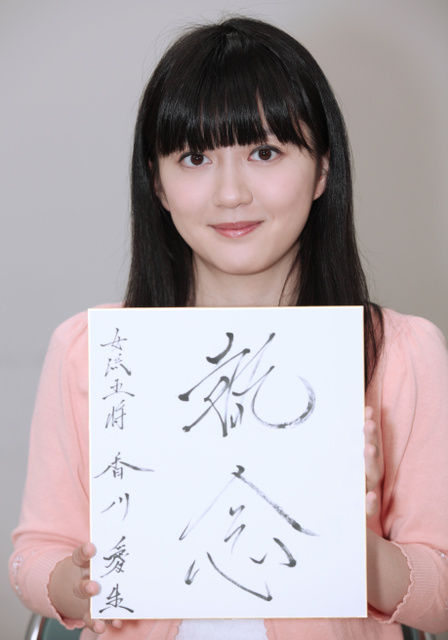 執念
女流王将 香川愛生